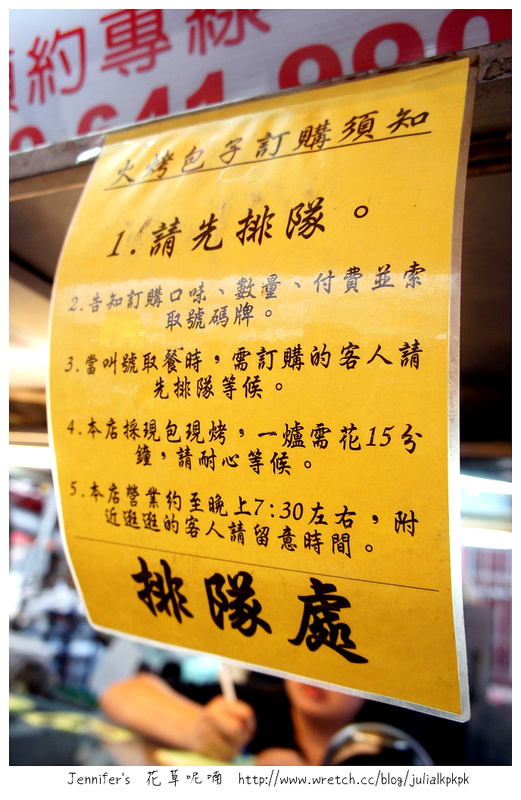 預約專線
641 990
火烤包子訂購須知
1.請先排隊。
2.告知訂購口味、數量、付費並索
取號碼牌。
3.當叫號取餐時，需訂購的客人請
先排隊等候。
4.本店採現包現烤，一爐需花15分
鐘，請耐心等候。
5.本店營業約至晚上7:30左右，附
近逛逛的客人請留意時間。
排隊處
Jennifer's 花草呢喃 http://www.wretch.cc/blog/julialkpkpk